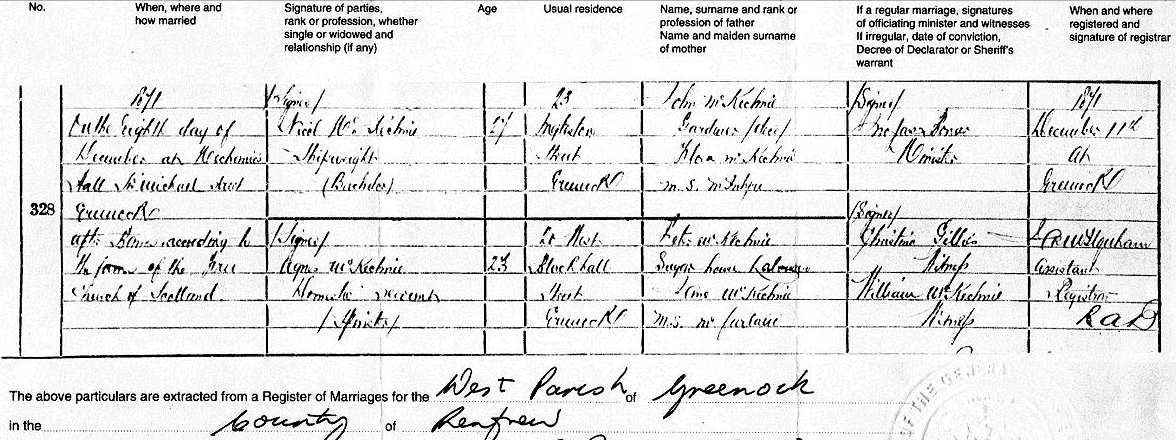 No.
When, where and
how married
Signature of parties,
rank or profession, whether
single or widowed and
relationship (if any)
Age
Usual residence
Name, surname and rank or
profession of father
Name and maiden surname
of mother
If a regular marriage, signatures
of officiating minister and witnesses
If irregular, date of conviction,
Decree of Declarator or Sheriff's
warrant
When and where
registered and
signature of registrar
328
1871
On the Eighth day of
December at Mechanics
Hall Sir Michael Street
Greenock
after Banns according to
the form of the Free
Church of Scotland
(Signed)
Shipwright
(Bachelor)
(Signed)
Agnes McKechnie
Domestic Servant
(Spinster)
27
23
23
Street
Greenock
Blackhall
Street
Greenock
John McKechnie
Gardener
Flora McKechnie
m.s. McIntyre
Peter McKechnie
Sugar house Labourer
McKechnie
m.s. McFarlane
(Signed)
Minister
(Signed)
Christina Gillies
Witness
William McKechnie
Witness
1871
December 11th
At
Greenock
Assistant
Registrar
The above particulars are extracted from a Register of Marriages for the West Parish of Greenock
in the County of Renfrew
OF THE GENER